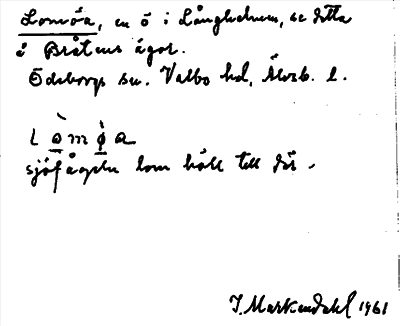 Lomöa, en ö i Långhalmen, se detta
å Bråtens ägor.
Ödeborgs sn. Valbo hd, Älvsb. l.
l ò m ø̀ a
sjöfågeln lom höll till där.
J. Markendahl 1961